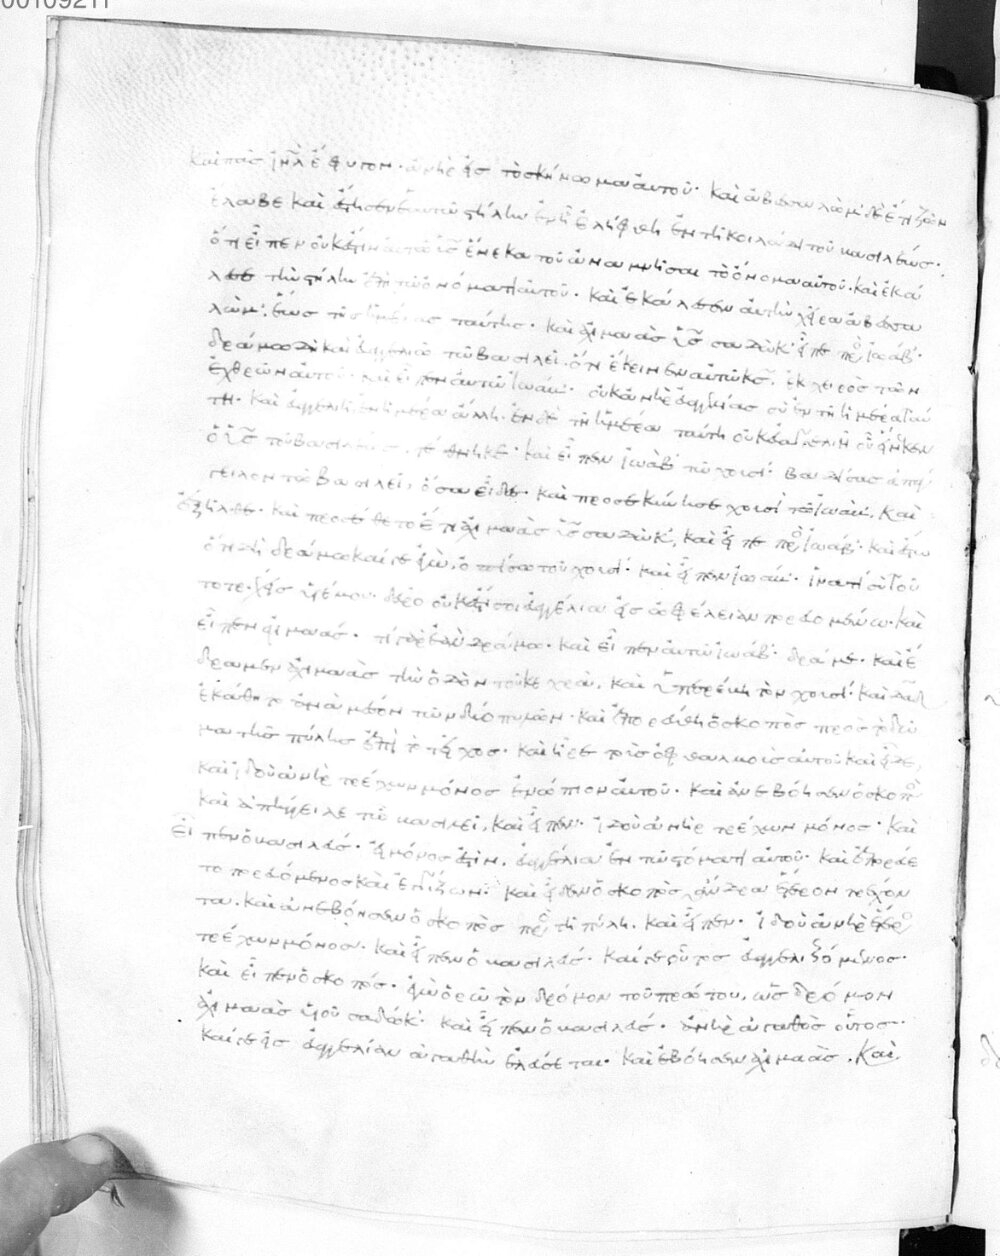 00109211
καὶ πᾶς ἰῆλ ἔφυγον· ἀνὴρ εἰς τὸ σκήνωμα αὐτοῦ· καὶ ἀβεσσαλὼμ δὲ ἔτι ζῶν
ἔλαβε καὶ ἔστησεν ἑαυτῷ στήλην ἐν ᾗ ἐλήφθη ἐν τῇ κοιλάδι τοῦ βασιλέως·
ὅτι εἶπεν οὐκ ἔστιν αὐτῷ υἱὸς ἕνεκα τοῦ ἀναμνῆσαι τὸ ὄνομα αὐτοῦ· καὶ ἐκά
λεσε τὴν στήλην ἐπὶ τῷ ὀνόματι αὐτοῦ· καὶ ἐκάλεσεν αὐτὴν χεῖρα ἀβεσσα
λώμ· ἕως τῆς ἡμέρας ταύτης· καὶ ἀχιμαὰς υἱὸς σαδὼκ εἶπε πρὸς ἰωάβ·
δράμω δὴ καὶ εὐαγγελιῶ τῷ βασιλεῖ· ὅτι ἔκρινεν αὐτῷ κς, ἐκ χειρὸς τῶν
ἐχθρῶν αὐτοῦ· καὶ εἶπεν αὐτῷ ἰωάβ· οὐκ ἀνὴρ εὐαγγελίας σὺ ἐν τῇ ἡμέρᾳ ταύ
τῃ· καὶ εὐαγγελιῇ ἐν ἡμέρᾳ ἄλλῃ· ἐν δὲ τῇ ἡμέρᾳ ταύτῃ οὐκ εὐαγγελιῇ οὗ εἵνεκεν
ὁ υἱὸς τοῦ βασιλέως τέθνηκε· καὶ εἶπεν ἰωὰβ τῷ χουσί· βαδίσας ἀπάγ
γειλον τῷ βασιλεῖ, ὅσα εἶδες· καὶ προσεκύνησε χουσὶ τῷ ἰωάβ, καὶ
ἐξῆλθε· καὶ προσέθετο ἔτι ἀχιμαὰς υἱὸς σαδώκ, καὶ εἶπε πρὸς ἰωάβ· καὶ ἔστω
ὅτι δὴ δράμω καίγε ἐγὼ, ὀπίσω τοῦ χουσί· καὶ εἶπεν ἰωάβ· ἱνατί σὺ τοῦ
το τρέχεις υἱέ μου· δεῦρο οὐκ ἔστι σοι εὐαγγέλια εἰς ὠφέλειαν πορευομένῳ· καὶ
εἶπεν ἀχιμαάς· τί γὰρ ἐὰν δράμω· καὶ εἶπεν αὐτῷ ἰωάβ· δράμε· καὶ ἔ
δραμεν ἀχιμαὰς τὴν ὁδὸν τοῦ κεχρὰν, καὶ ὑπερέβη τὸν χουσί· καὶ δαδ
ἐκάθητο ἀνὰ μέσον τῶν δύο πυλῶν· καὶ ἐπορεύθη ὁ σκοπὸς πρὸς τὸ δῶ
μα τῆς πύλης ἐπὶ τὸ τεῖχος· καὶ ἦρε τοὺς ὀφθαλμοὺς αὐτοῦ καὶ εἶδε,
καὶ ἰδοὺ ἀνὴρ τρέχων μόνος ἐνώπιον αὐτοῦ· καὶ ἀνεβόησεν ὁ σκοπὸς
καὶ ἀπήγγειλε τῷ βασιλεῖ, καὶ εἶπεν· ἰδοὺ ἀνὴρ τρέχων μόνος· καὶ
εἶπεν ὁ βασιλεύς· εἰ μόνος ἐστίν, εὐαγγέλια ἐν τῷ στόματι αὐτοῦ· καὶ ἐπορεύε
το πορευόμενος καὶ ἐγγίζων· καὶ εἶδεν ὁ σκοπὸς ἄνδρα ἕτερον τρέχον
τα· καὶ ἀνεβόησεν ὁ σκοπὸς πρὸς τῇ πύλῃ, καὶ εἶπεν· ἰδοὺ ἀνὴρ ἕτερος
τρέχων μόνος· καὶ εἶπεν ὁ βασιλεύς· καίγε οὗτος εὐαγγελιζόμενος·
καὶ εἶπεν ὁ σκοπός· ἐγὼ ὁρῶ τὸν δρόμον τοῦ πρώτου, ὡς δρόμον
ἀχιμαὰς υἱοῦ σαδώκ· καὶ εἶπεν ὁ βασιλεύς· ἀνὴρ ἀγαθὸς οὗτος·
καίγε εἰς εὐαγγελίαν ἀγαθὴν ἐλεύσεται· καὶ ἐβόησεν ἀχιμαὰς, καὶ